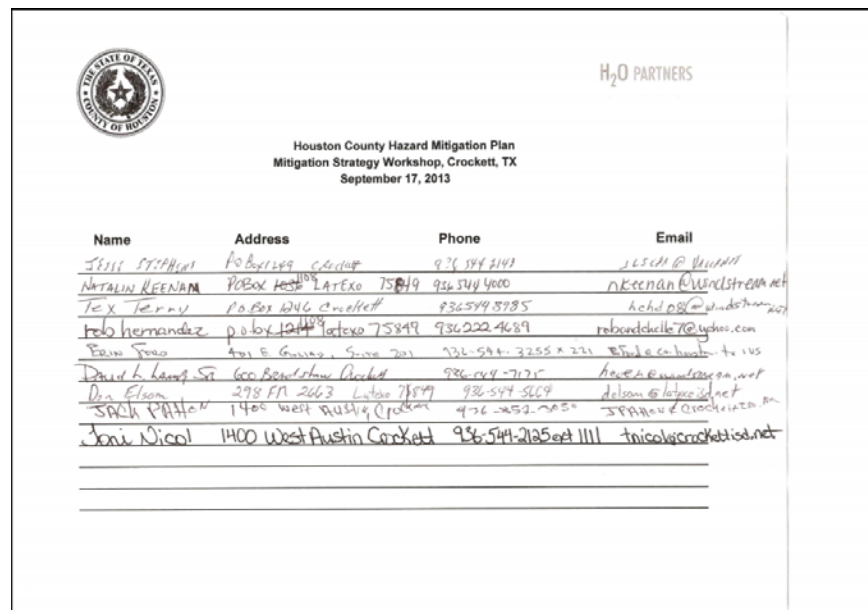 THE STATE OF TEXAS
COUNTY OF HOUSTON
H2O PARTNERS
Houston County Hazard Mitigation Plan
Mitigation Strategy Workshop, Crockett, TX
September 17, 2013
Name Address Phone Email
JESSE STEPHENS PO Box 1249 Crockett 936 544 2143
NATALIN KEENAN POBOX 1108 LATEXO 75849 936 544 4000 nkeenan@windstream.net
Tex Terry P.O. Box 1246 Crockett 936 544 8985 hchd08@windstream.net
rob hernandez p.o.box 1108 latexo 75849 936 222 4689 robandchelle7@yahoo.com
401 E. Suite 201 936-544-3255 x 221
David L. Lamb Sr 600 Bradshaw Crockett 936-544-7175
Don Elsom 298 FM 2663 Latexo 75849 936-544-5664 delsom@latexoisd.net
JACK PATTON 1400 west Austin Crockett
Toni Nicol 1400 West Austin Crockett 936-544-2125 ext 1111 tnicol@crockettisd.net